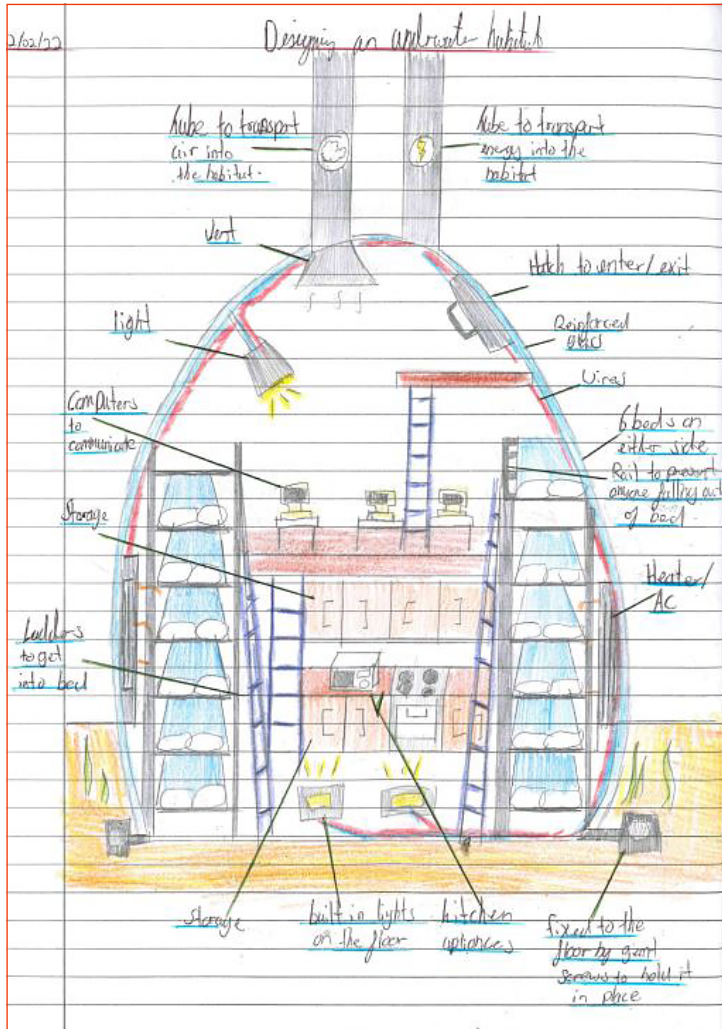 2/02/22
Designing an underwater habitat
tube to transport
air into
the habitat.
tube to transport
energy into the
habitat
Vent
Hatch to enter/exit
light
Reinforced
glass
Wires
Computers
to
communicate
6 beds on
either side
Rail to prevent
anyone falling out
of bed.
Storage
Heater/
AC
Ladders
to get
into bed
Storage
built in lights
on the floor
kitchen
apliances
fixed to the
floor by giant
screws to hold it
in place